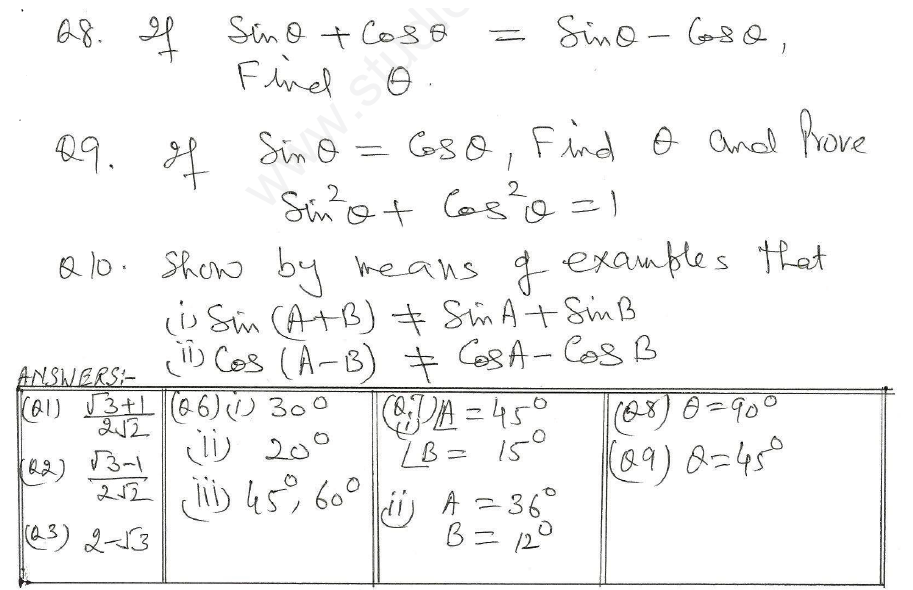 Q8. If Sinθ + Cosθ = Sinθ - Cosθ,
Find θ.
Q9. If Sinθ = Cosθ, Find θ and Prove
Sin²θ + Cos²θ = 1
Q10. Show by means of examples that
(i) Sin (A+B) ≠ SinA + SinB
(ii) Cos (A-B) ≠ CosA - Cos B
ANSWERS:-
(Q1) √3+1/2√2
(Q2) √3-1/2√2
(Q3) 2-√3
(Q6) (i) 30°
(ii) 20°
(iii) 45°, 60°
(Q7) (i) ∠A = 45°
∠B = 15°
(ii) A = 36°
B = 12°
(Q8) θ = 90°
(Q9) θ = 45°
www.studi